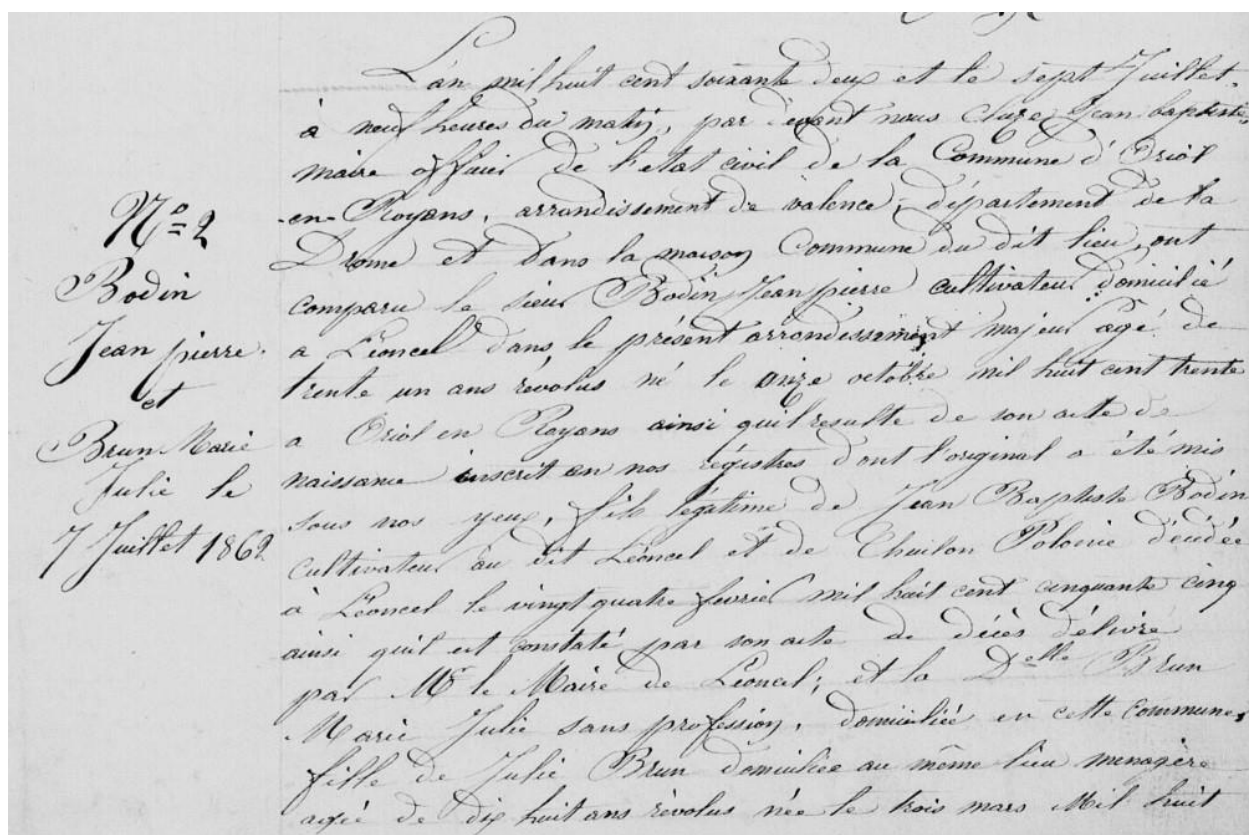 Nº 2
Bodin
Jean pierre
et
Brun Marie
Julie le
7 Juillet 1862
L'an mil huit cent soixante deux et le sept Juillet
à neuf heures du matin, par devant nous Jean baptiste,
maire officier de l'etat civil de la Commune d'Oriol
-en-Royans, arrondissement de valence, département de la
Drome et dans la maison Commune du dit lieu, ont
comparu le sieur Bodin Jean pierre cultivateur domicilié
a Léoncel dans le présent arrondissement majeur agé de
trente un ans révolus né le onze octobre mil huit cent trente
a Oriol en Royans ainsi quil resulte de son acte de
naissance inscrit en nos régistres dont l'original a été mis
sous nos yeux, fils légitime de Jean Baptiste Bodin
cultivateur au dit Léoncel et de Polonie décédée
à Léoncel le vingt quatre fevrier mil huit cent cinquante cinq
ainsi quil est constaté par son acte de décès délivré
par Mr le Maire de Léoncel; et la Delle Brun
Marie Julie sans profession, domiciliée en cette Commune,
fille de Julie Brun domiciliée au même lieu menagère
agée de dix huit ans révolus née le trois mars Mil huit